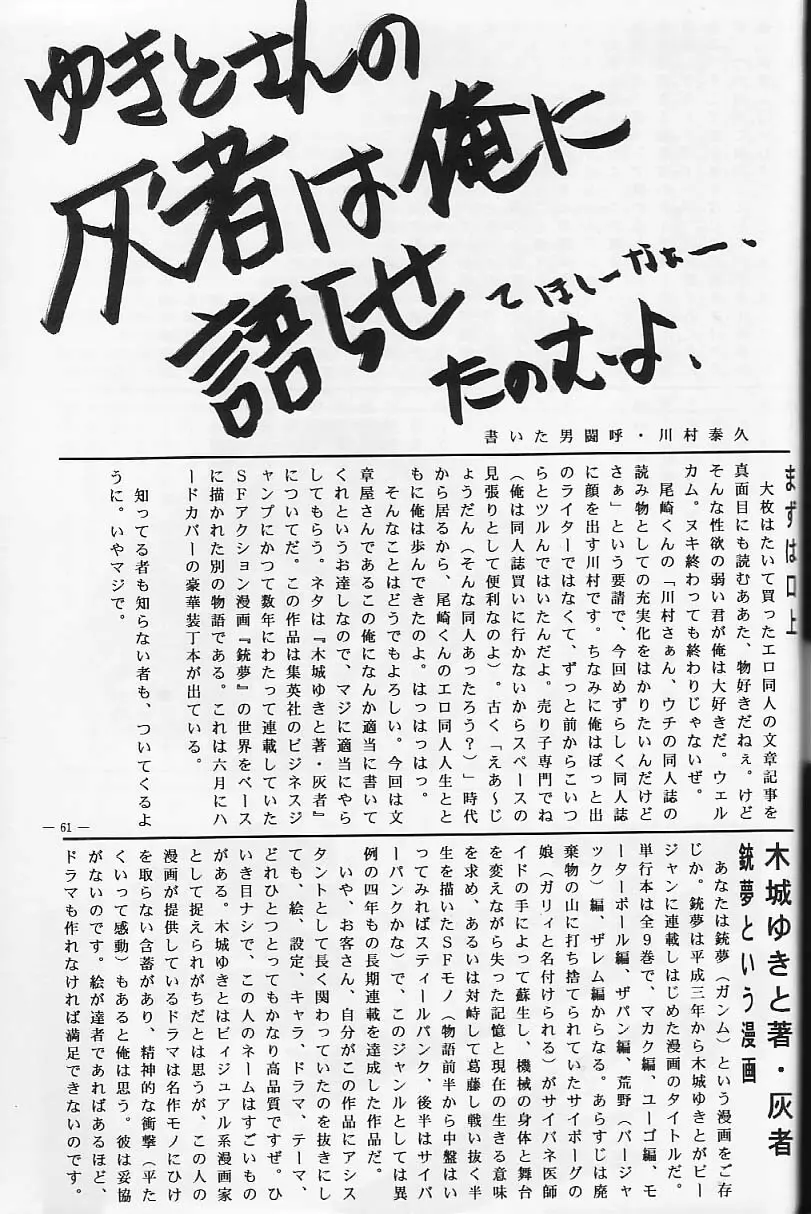 ゆきとさんの
灰者は俺に
語らせ
てほしーなぁー、
たのむよ、
書いた男闘呼・川村泰久
まずは口上
　大枚はたいて買ったエロ同人の文章記事を
真面目にも読むああた、物好きだねぇ。けど
そんな性欲の弱い君が俺は大好きだ。ウェル
カム。ヌキ終わっても終わりじゃないぜ。
　尾崎くんの「川村さぁん、ウチの同人誌の
読み物としての充実化をはかりたいんだけど
さぁ」という要請で、今回めずらしく同人誌
に顔を出す川村です。ちなみに俺はぽっと出
のライターではなくて、ずっと前からこいつ
らとツルんではいたんだよ。売り子専門でね
（俺は同人誌買いに行かないからスペースの
見張りとして便利なのよ）。古く「えあ～じ
ょうだん（そんな同人あったろう？）」時代
から居るから、尾崎くんのエロ同人人生とと
もに俺は歩んできたのよ。はっはっはっ。
　そんなことはどうでもよろしい。今回は文
章屋さんであるこの俺になんか適当に書いて
くれというお達しなので、マジに適当にやら
してもらう。ネタは『木城ゆきと著・灰者』
についてだ。この作品は集英社のビジネスジ
ャンプにかつて数年にわたって連載していた
ＳＦアクション漫画『銃夢』の世界をベース
に描かれた別の物語である。これは六月にハ
ードカバーの豪華装丁本が出ている。
　知ってる者も知らない者も、ついてくるよ
うに。いやマジで。
― 61 ―
木城ゆきと著・灰者
銃夢という漫画
　あなたは銃夢（ガンム）という漫画をご存
じか。銃夢は平成三年から木城ゆきとがビー
ジャンに連載しはじめた漫画のタイトルだ。
単行本は全９巻で、マカク編、ユーゴ編、モ
ーターボール編、ザパン編、荒野（バージャ
ック）編、ザレム編からなる。あらすじは廃
棄物の山に打ち捨てられていたサイボーグの
娘（ガリィと名付けられる）がサイバネ医師
イドの手によって蘇生し、機械の身体と舞台
を変えながら失った記憶と現在の生きる意味
を求め、あるいは対峙して葛藤し戦い抜く半
生を描いたＳＦモノ（物語前半から中盤はい
ってみればスティールパンク、後半はサイバ
ーパンクかな）で、このジャンルとしては異
例の四年もの長期連載を達成した作品だ。
　いや、お客さん、自分がこの作品にアシス
タントとして長く関わっていたのを抜きにし
ても、絵、設定、キャラ、ドラマ、テーマ、
どれひとつとってもかなり高品質ですぜ。ひ
いき目ナシで、この人のネームはすごいもの
がある。木城ゆきとはビィジュアル系漫画家
として捉えられがちだとは思うが、この人の
漫画が提供しているドラマは名作モノにひけ
を取らない含蓄があり、精神的な衝撃（平た
くいって感動）もあると俺は思う。彼は妥協
がないのです。絵が達者であればあるほど、
ドラマも作れなければ満足できないのです。